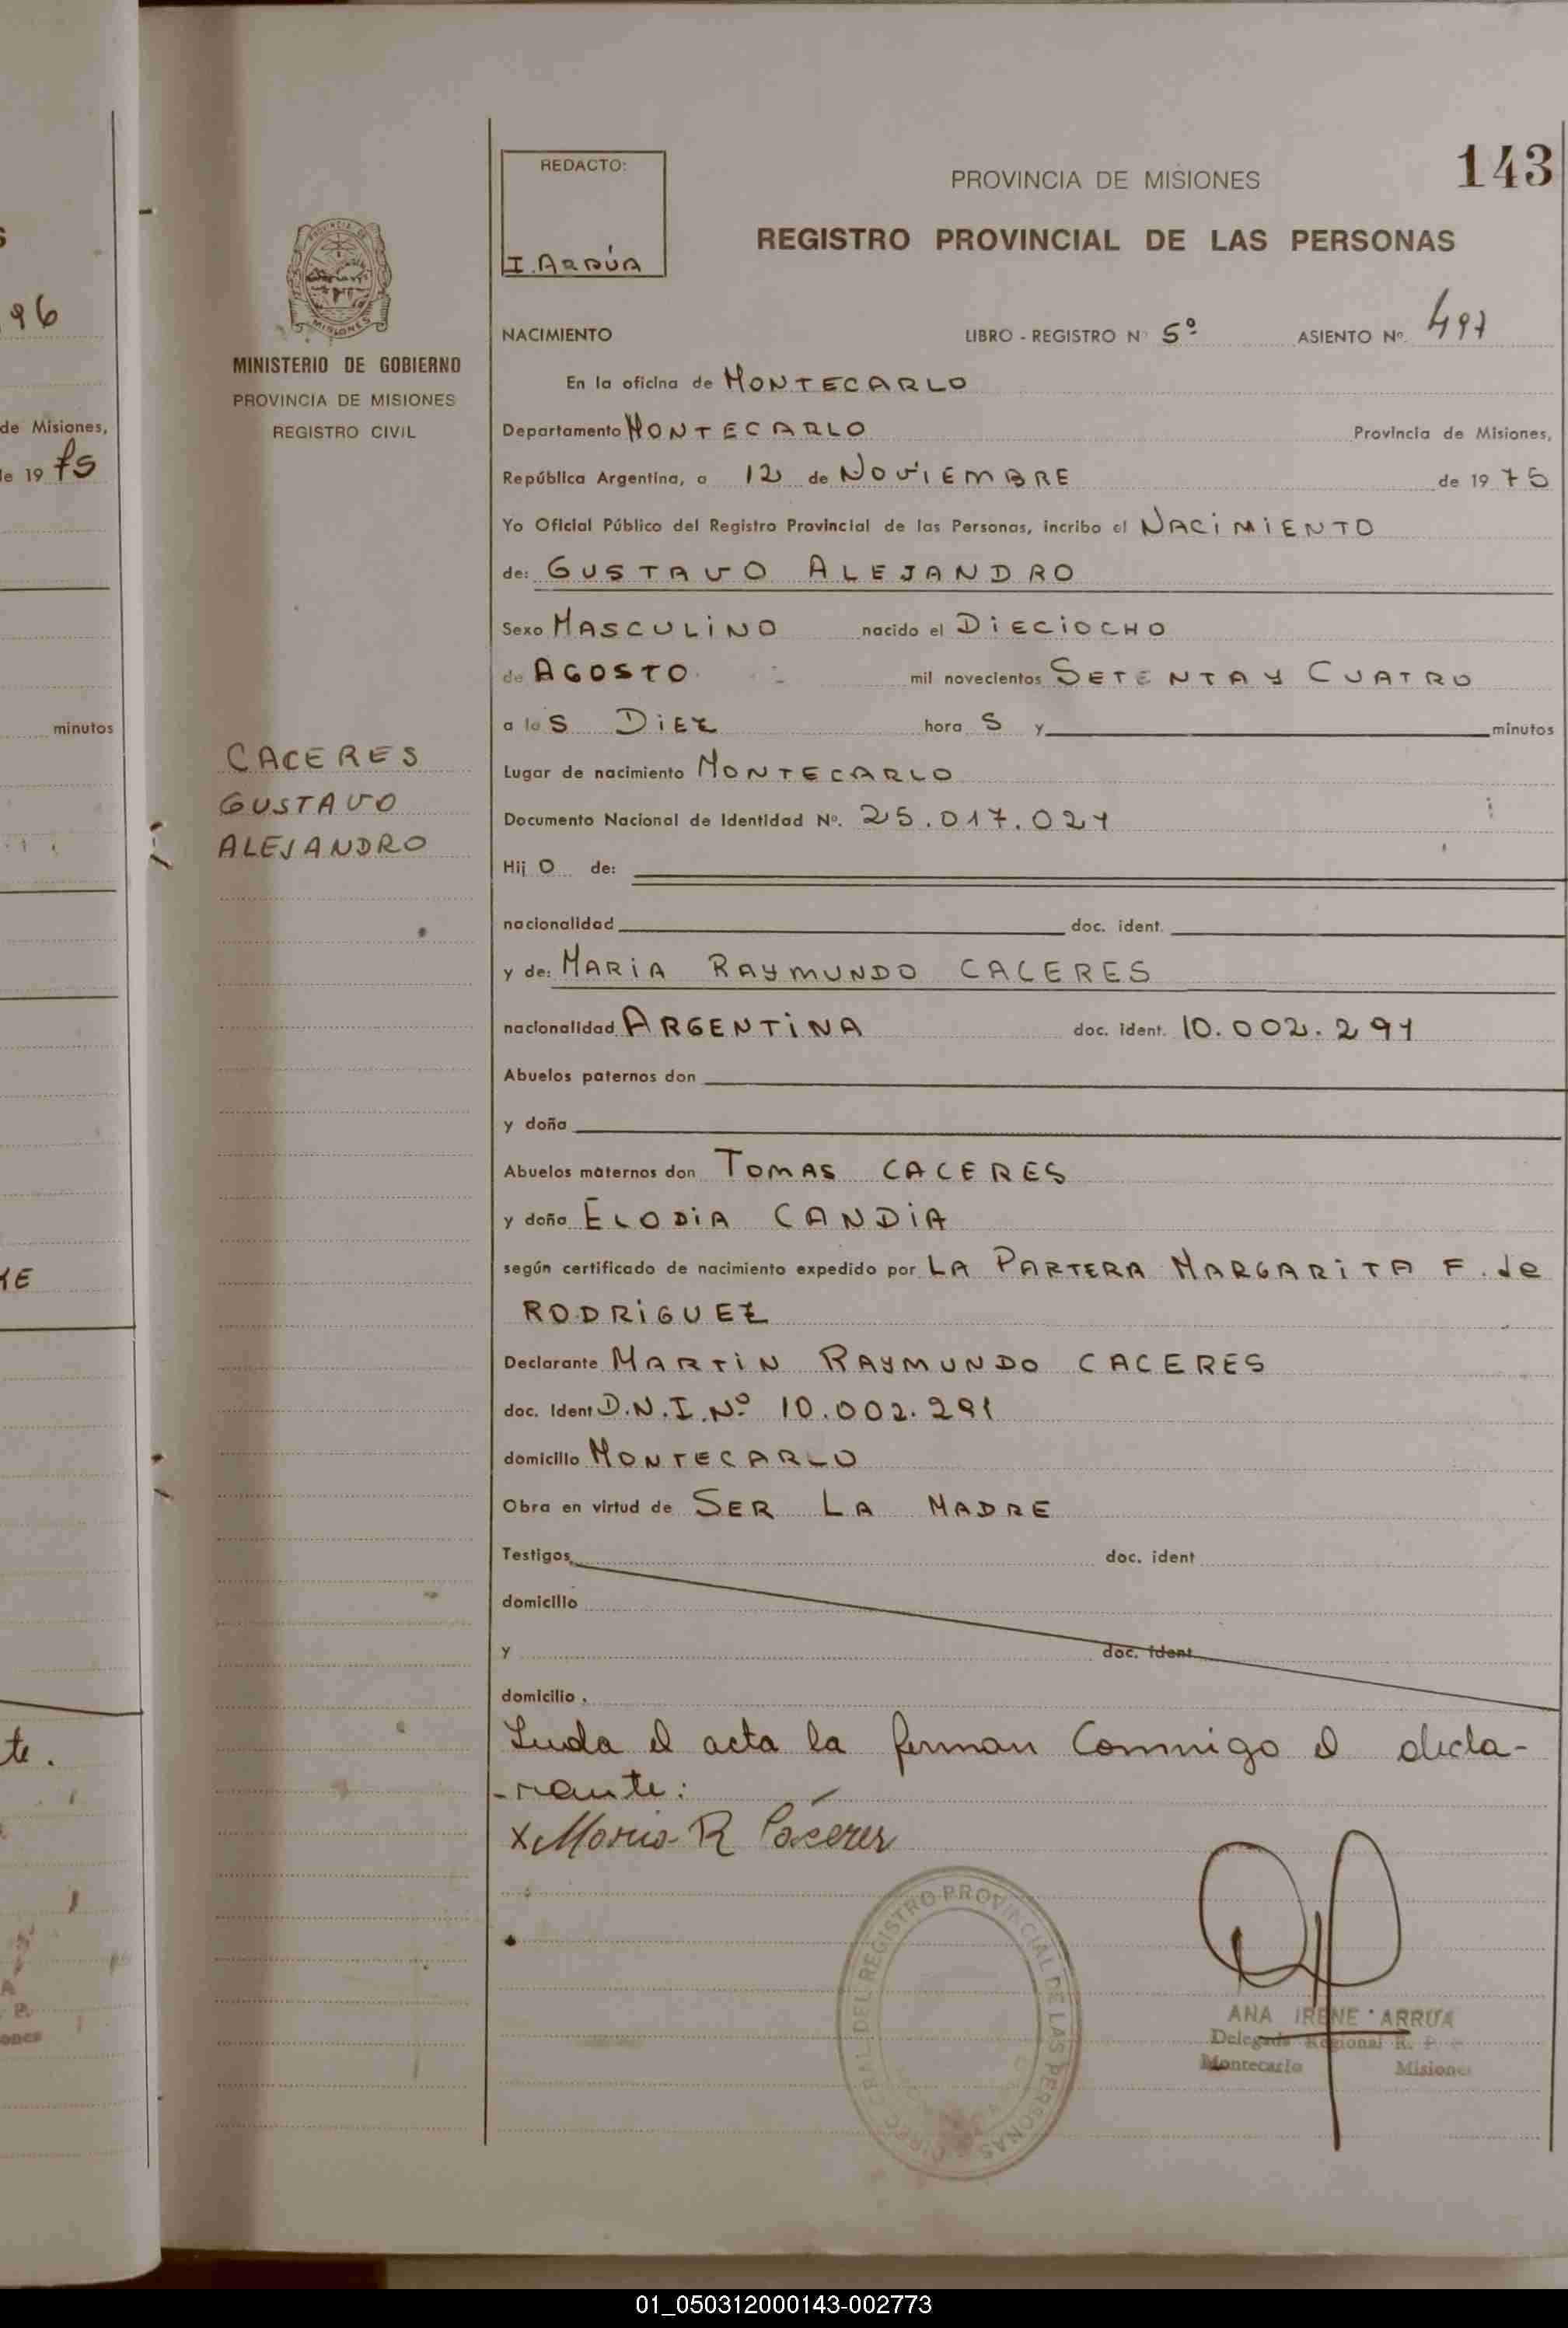 REDACTO:
I. ARRÚA
PROVINCIA DE MISIONES
143
REGISTRO PROVINCIAL DE LAS PERSONAS
MINISTERIO DE GOBIERNO
PROVINCIA DE MISIONES
REGISTRO CIVIL
96
de Misiones,
de 19 75
minutos
te.
NACIMIENTO LIBRO - REGISTRO Nº 5º ASIENTO Nº 497
En la oficina de MONTECARLO
Departamento MONTECARLO Provincia de Misiones,
República Argentina, a 12 de NOVIEMBRE de 19 75
Yo Oficial Público del Registro Provincial de las Personas, incribo el NACIMIENTO
de: GUSTAVO ALEJANDRO
Sexo MASCULINO nacido el DIECIOCHO
de AGOSTO mil novecientos SETENTA Y CUATRO
a las DIEZ horas y minutos
CACERES
GUSTAVO
ALEJANDRO
Lugar de nacimiento MONTECARLO
Documento Nacional de Identidad Nº. 25.017.021
Hijo de:
nacionalidad doc. ident.
y de: MARIA RAYMUNDO CACERES
nacionalidad ARGENTINA doc. ident. 10.002.291
Abuelos paternos don
y doña
Abuelos maternos don TOMAS CACERES
y doña ELODIA CANDIA
según certificado de nacimiento expedido por LA PARTERA MARGARITA F. de
RODRIGUEZ
Declarante MARTIN RAYMUNDO CACERES
doc. Ident D.N.I.Nº 10.002.291
domicilio MONTECARLO
Obra en virtud de SER LA MADRE
Testigos doc. ident
domicilio
y doc. ident
domicilio
Leida el acta la firman Conmigo el decla-
-rante:
x Maria R Cáceres
DIREC. GRAL. DEL REGISTRO PROVINCIAL DE LAS PERSONAS
ANA IRENE ARRUA
Delegada Regional R. P.
Montecarlo Misiones
01_050312000143-002773